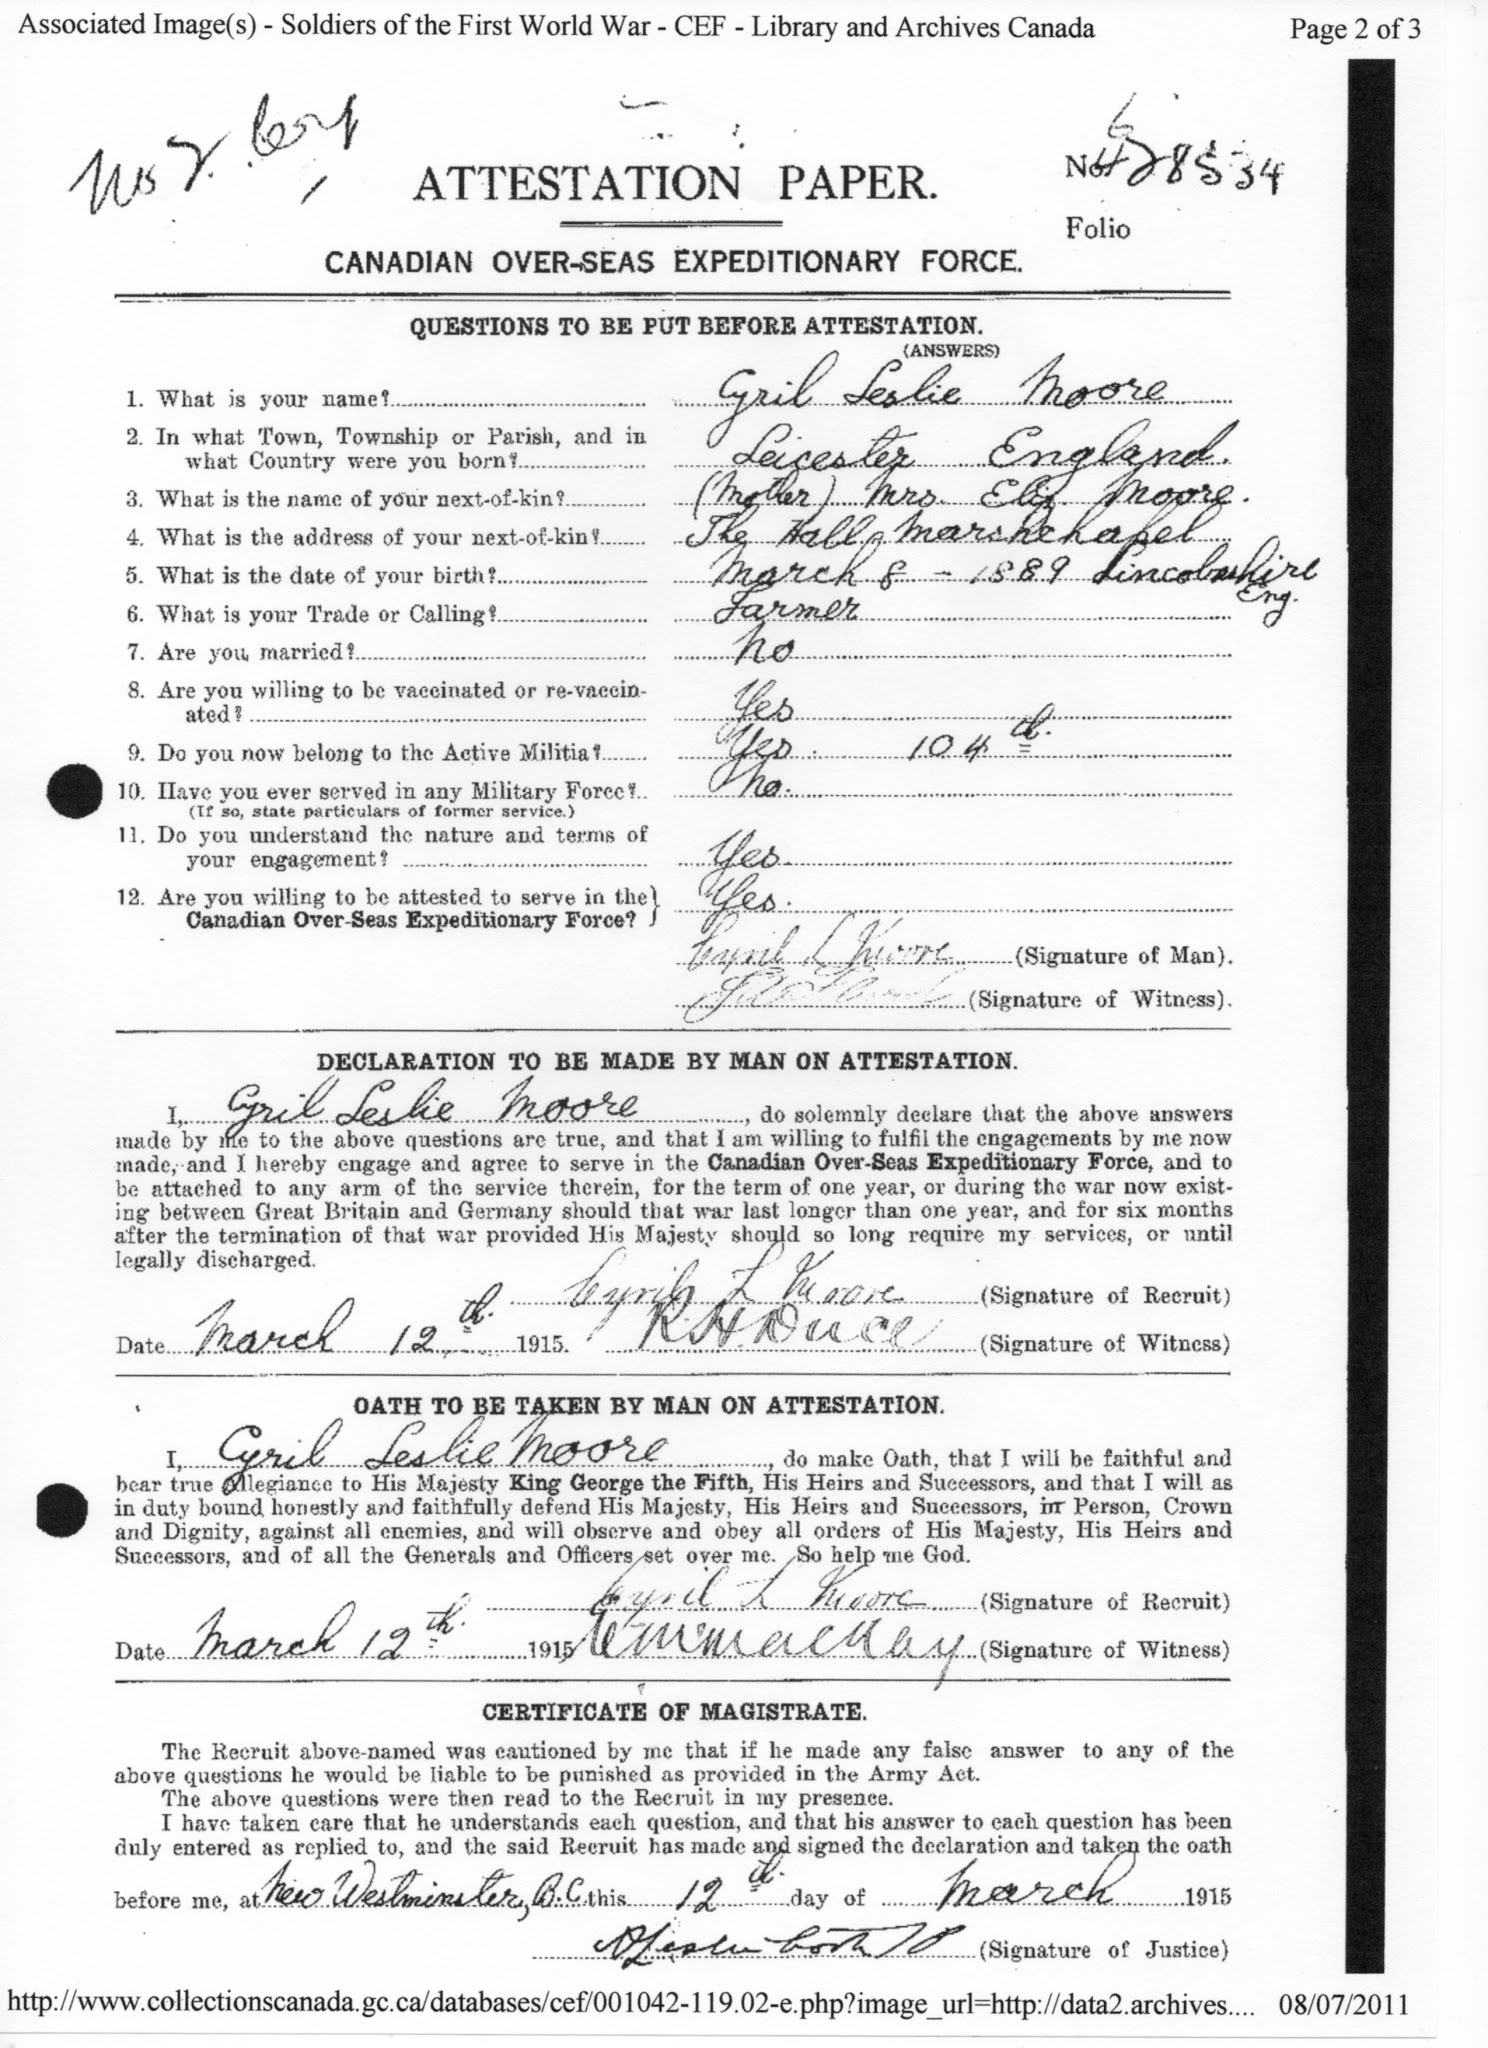 Associated Image(s) - Soldiers of the First World War - CEF - Library and Archives Canada Page 2 of 3
ATTESTATION PAPER.
No. 428534
Folio
CANADIAN OVER-SEAS EXPEDITIONARY FORCE.
QUESTIONS TO BE PUT BEFORE ATTESTATION.
(ANSWERS)
1. What is your name? Cyril Leslie Moore
2. In what Town, Township or Parish, and in
what Country were you born? Leicester England.
3. What is the name of your next-of-kin? (Mother) Mrs. Eliz. Moore.
4. What is the address of your next-of-kin? The Hall, Marshchapel
5. What is the date of your birth? March 8 - 1889 Lincolnshire
Eng.
6. What is your Trade or Calling? Farmer
7. Are you married? No
8. Are you willing to be vaccinated or re-vaccin-
ated? Yes
9. Do you now belong to the Active Militia? Yes. 104th.
10. Have you ever served in any Military Force? No.
(If so, state particulars of former service.)
11. Do you understand the nature and terms of
your engagement? Yes.
12. Are you willing to be attested to serve in the
Canadian Over-Seas Expeditionary Force? Yes.
Cyril L Moore (Signature of Man).
(Signature of Witness).
DECLARATION TO BE MADE BY MAN ON ATTESTATION.
I, Cyril Leslie Moore, do solemnly declare that the above answers
made by me to the above questions are true, and that I am willing to fulfil the engagements by me now
made, and I hereby engage and agree to serve in the Canadian Over-Seas Expeditionary Force, and to
be attached to any arm of the service therein, for the term of one year, or during the war now exist-
ing between Great Britain and Germany should that war last longer than one year, and for six months
after the termination of that war provided His Majesty should so long require my services, or until
legally discharged.
Cyril L Moore (Signature of Recruit)
Date March 12th. 1915. R. H. Duce (Signature of Witness)
OATH TO BE TAKEN BY MAN ON ATTESTATION.
I, Cyril Leslie Moore, do make Oath, that I will be faithful and
bear true Allegiance to His Majesty King George the Fifth, His Heirs and Successors, and that I will as
in duty bound honestly and faithfully defend His Majesty, His Heirs and Successors, in Person, Crown
and Dignity, against all enemies, and will observe and obey all orders of His Majesty, His Heirs and
Successors, and of all the Generals and Officers set over me. So help me God.
Cyril L Moore (Signature of Recruit)
Date March 12th. 1915 MacKay (Signature of Witness)
CERTIFICATE OF MAGISTRATE.
The Recruit above-named was cautioned by me that if he made any false answer to any of the
above questions he would be liable to be punished as provided in the Army Act.
The above questions were then read to the Recruit in my presence.
I have taken care that he understands each question, and that his answer to each question has been
duly entered as replied to, and the said Recruit has made and signed the declaration and taken the oath
before me, at New Westminster, B.C. this 12th. day of March 1915
(Signature of Justice)
http://www.collectionscanada.gc.ca/databases/cef/001042-119.02-e.php?image_url=http://data2.archives.... 08/07/2011